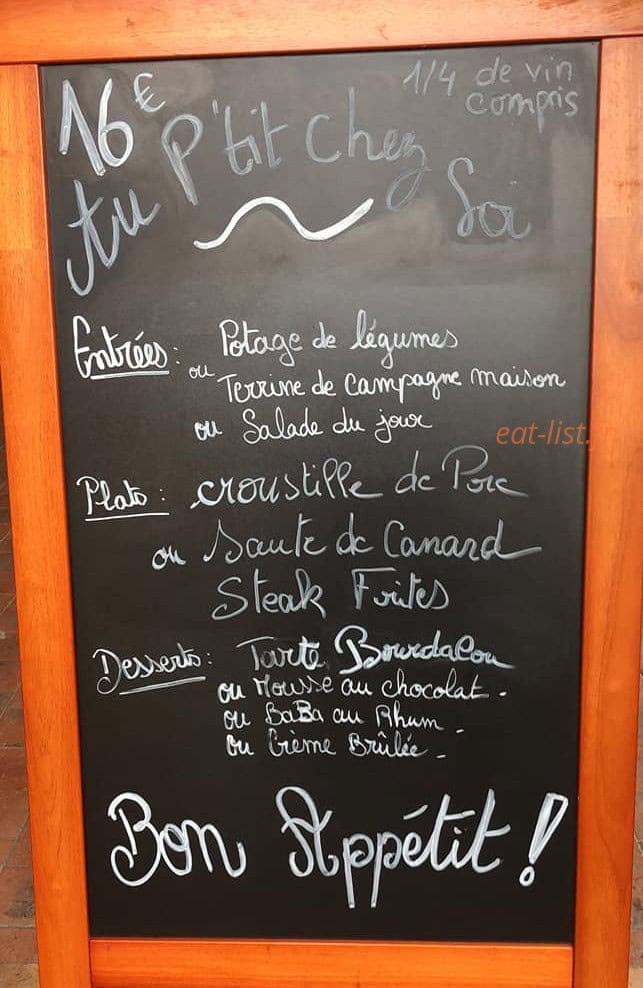 16€
1/4 de vin
compris
Au P'tit Chez Soi
Entrées : Potage de légumes
ou Terrine de campagne maison
ou Salade du jour
eat-list.
Plats : croustille de Porc
ou Sauté de Canard
Steak Frites
Desserts : Tarte Bourdalou
ou Mousse au chocolat.
ou BaBa au Rhum.
ou Crème Brûlée.
Bon Appétit !